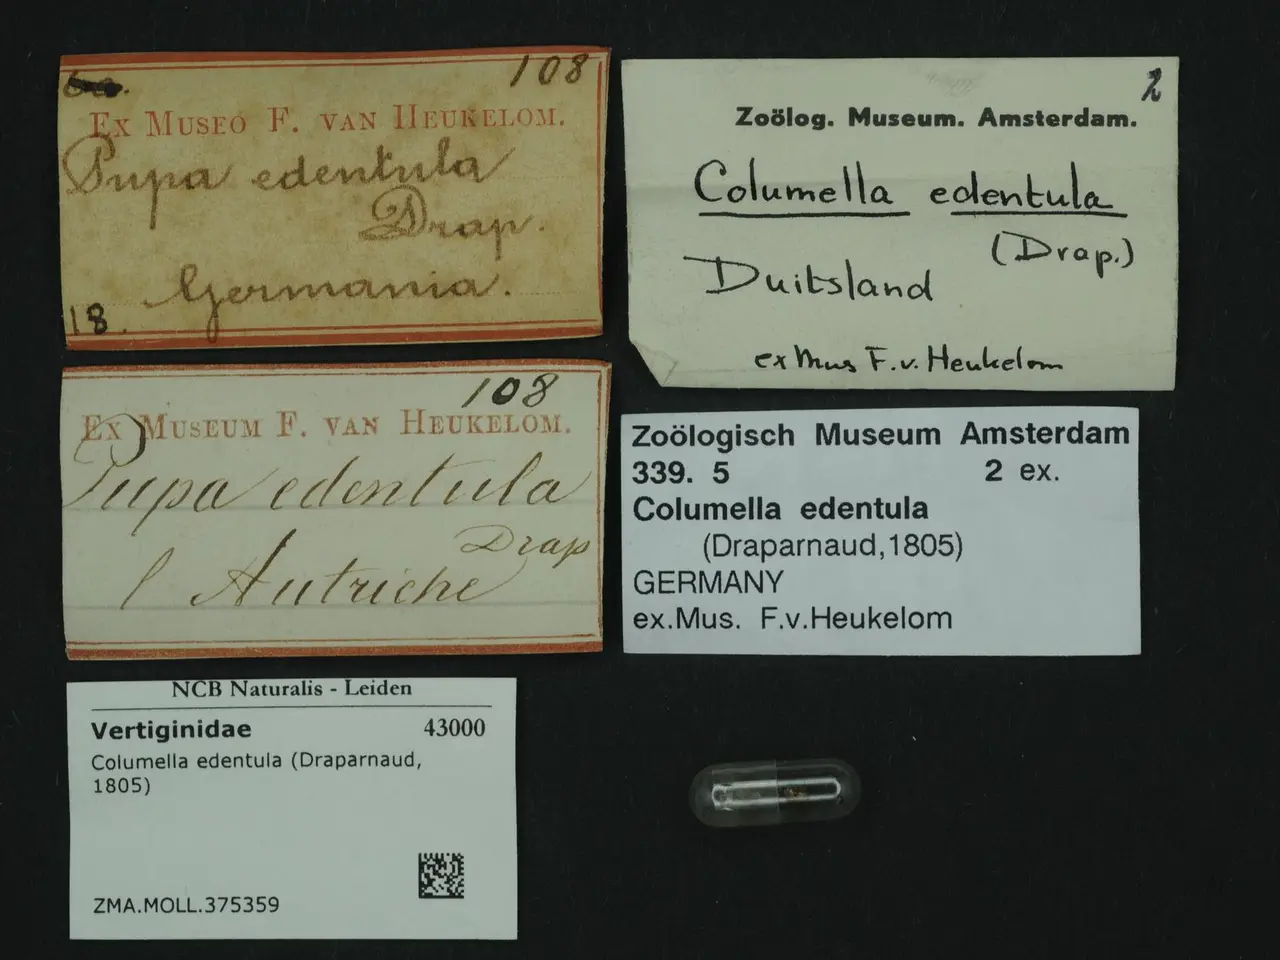 108
Ex Museo F. van Heukelom.
Pupa edentula
Drap.
Germania.
18.
2
Zoölog. Museum. Amsterdam.
Columella edentula
(Drap.)
Duitsland
ex Mus F. v. Heukelom
108
Ex Museum F. van Heukelom.
Pupa edentula
Drap
l'Autriche
Zoölogisch Museum Amsterdam
339. 5 2 ex.
Columella edentula
(Draparnaud,1805)
GERMANY
ex.Mus. F.v.Heukelom
NCB Naturalis - Leiden
Vertiginidae 43000
Columella edentula (Draparnaud,
1805)
ZMA.MOLL.375359